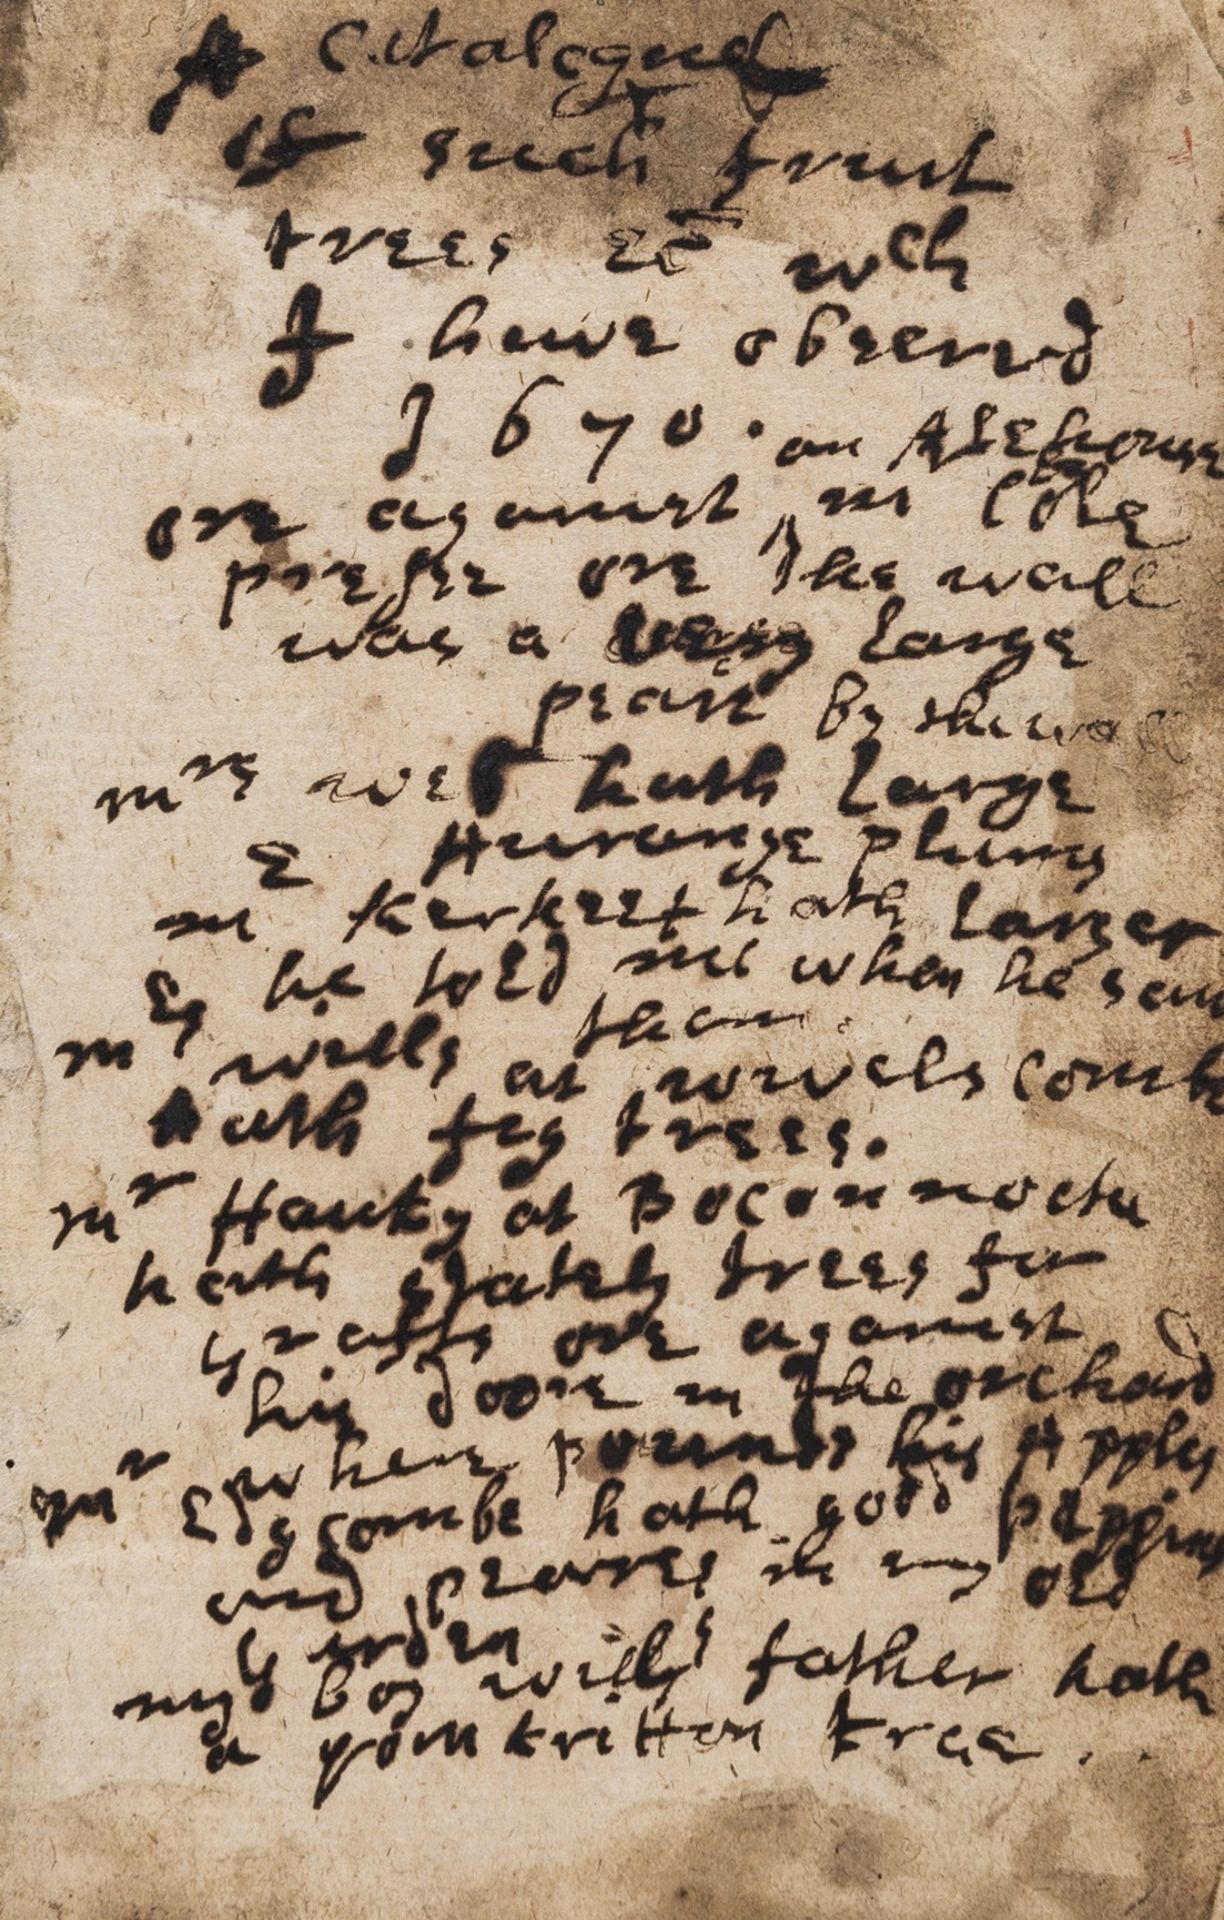 A Catalogue
of such fruit
trees &c wch
I have observed
1670. an Alehouse
ore against in
ore the wall
was a very large
peare by the wall
mrs west hath large
& Aurange plums
mr hath larger
as he told me when he saw
them.
mr wills at combe
hath feg trees.
mr Hauky at Boconnocke
hath stately trees for
graffs ore against
his doore in the orchard
where pounds his Apples
mr Edgcombe hath good peppins
and peares in my old
garden
my boy wills father hath
a tree.